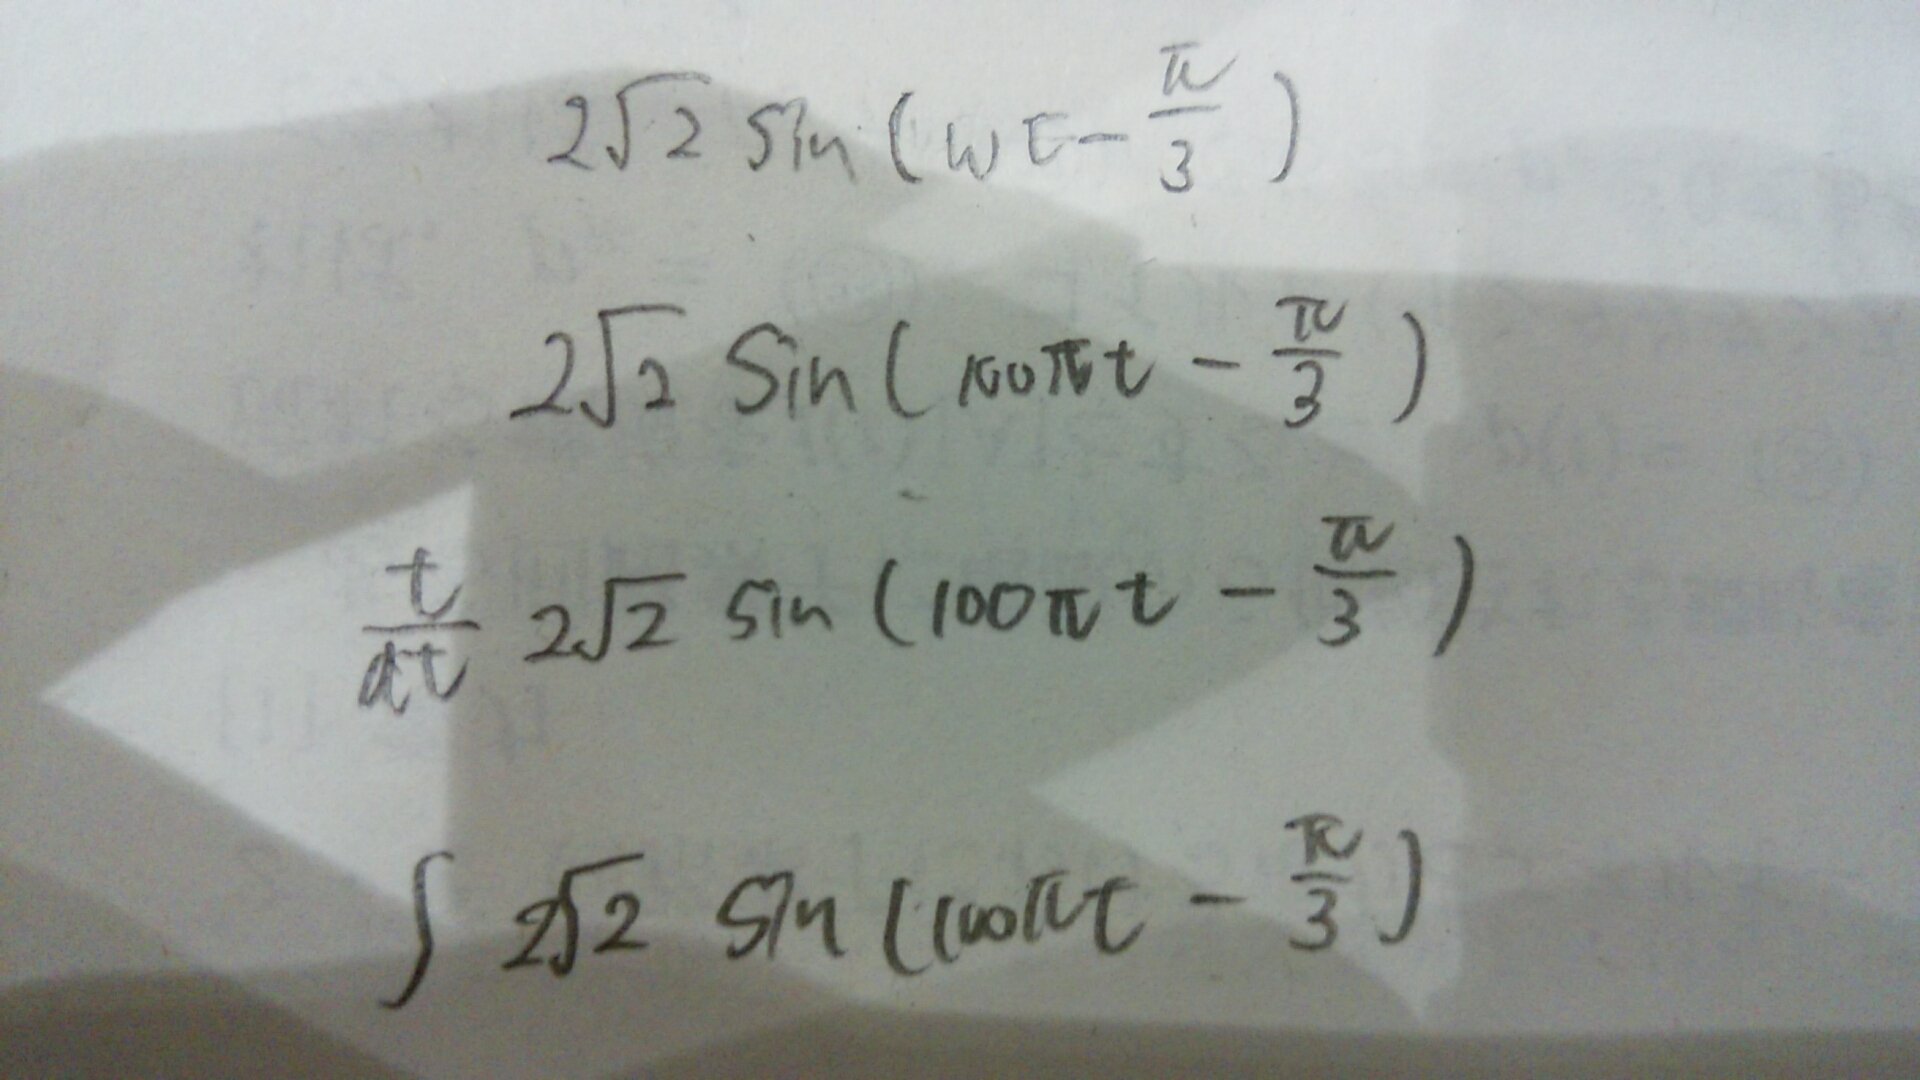 2√2 sin(ωt - π/3)
2√2 sin(100πt - π/3)
t/dt 2√2 sin(100πt - π/3)
∫ 2√2 sin(100πt - π/3)